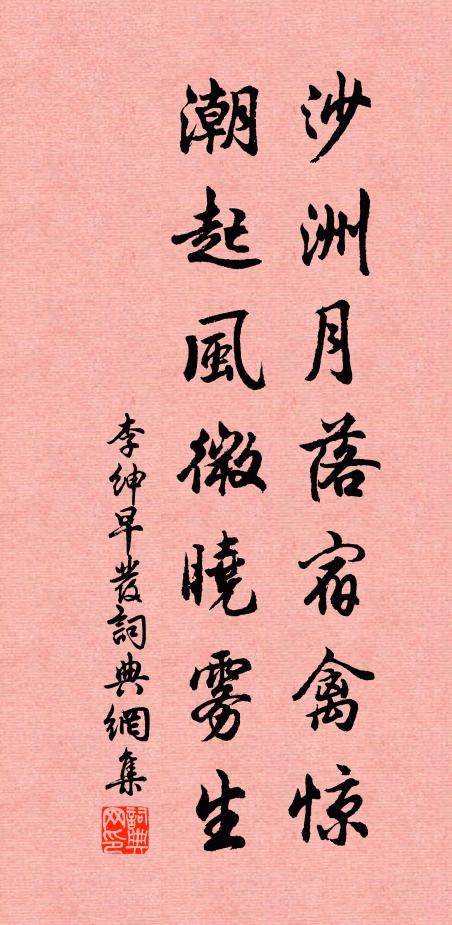 沙洲月落宿禽惊
潮起風微曉雾生
李紳早發詞典網集
詞典网印